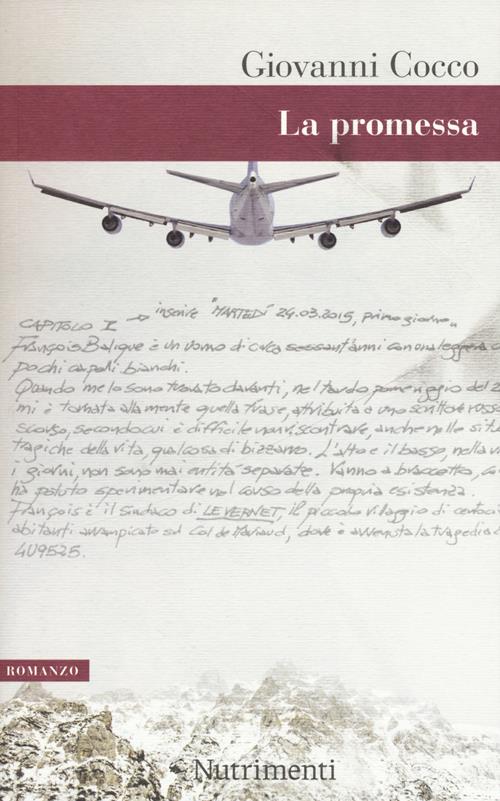 Giovanni Cocco
La promessa
CAPITOLO I → inserire "MARTEDÌ 24.03.2015, primo giorno"
François Balique è un uomo di circa sessant'anni con una leggera
pochi capelli bianchi.
Quando me lo sono trovato davanti, nel tardo pomeriggio del 2
mi è tornata alla mente quella frase, attribuita a uno scrittore russo
scorso, secondo cui è difficile non riscontrare, anche nelle situ
tragiche della vita, qualcosa di bizzarro. L'alto e il basso, nella vi
i giorni, non sono mai entità separate. Vanno a braccetto, co
ha potuto sperimentare nel corso della propria esistenza.
François è il sindaco di LE VERNET, il piccolo villaggio di centoci
abitanti arrampicato sul Col de Mariaud, dove è avvenuta la tragedia d
4U9525.
ROMANZO
Nutrimenti